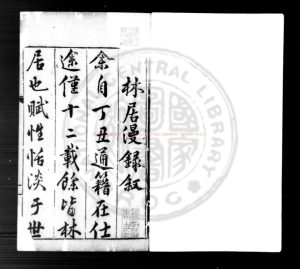 林居漫録叙
余自丁丑通籍在仕
途僅十二載餘皆林
居也賦性恬淡于世